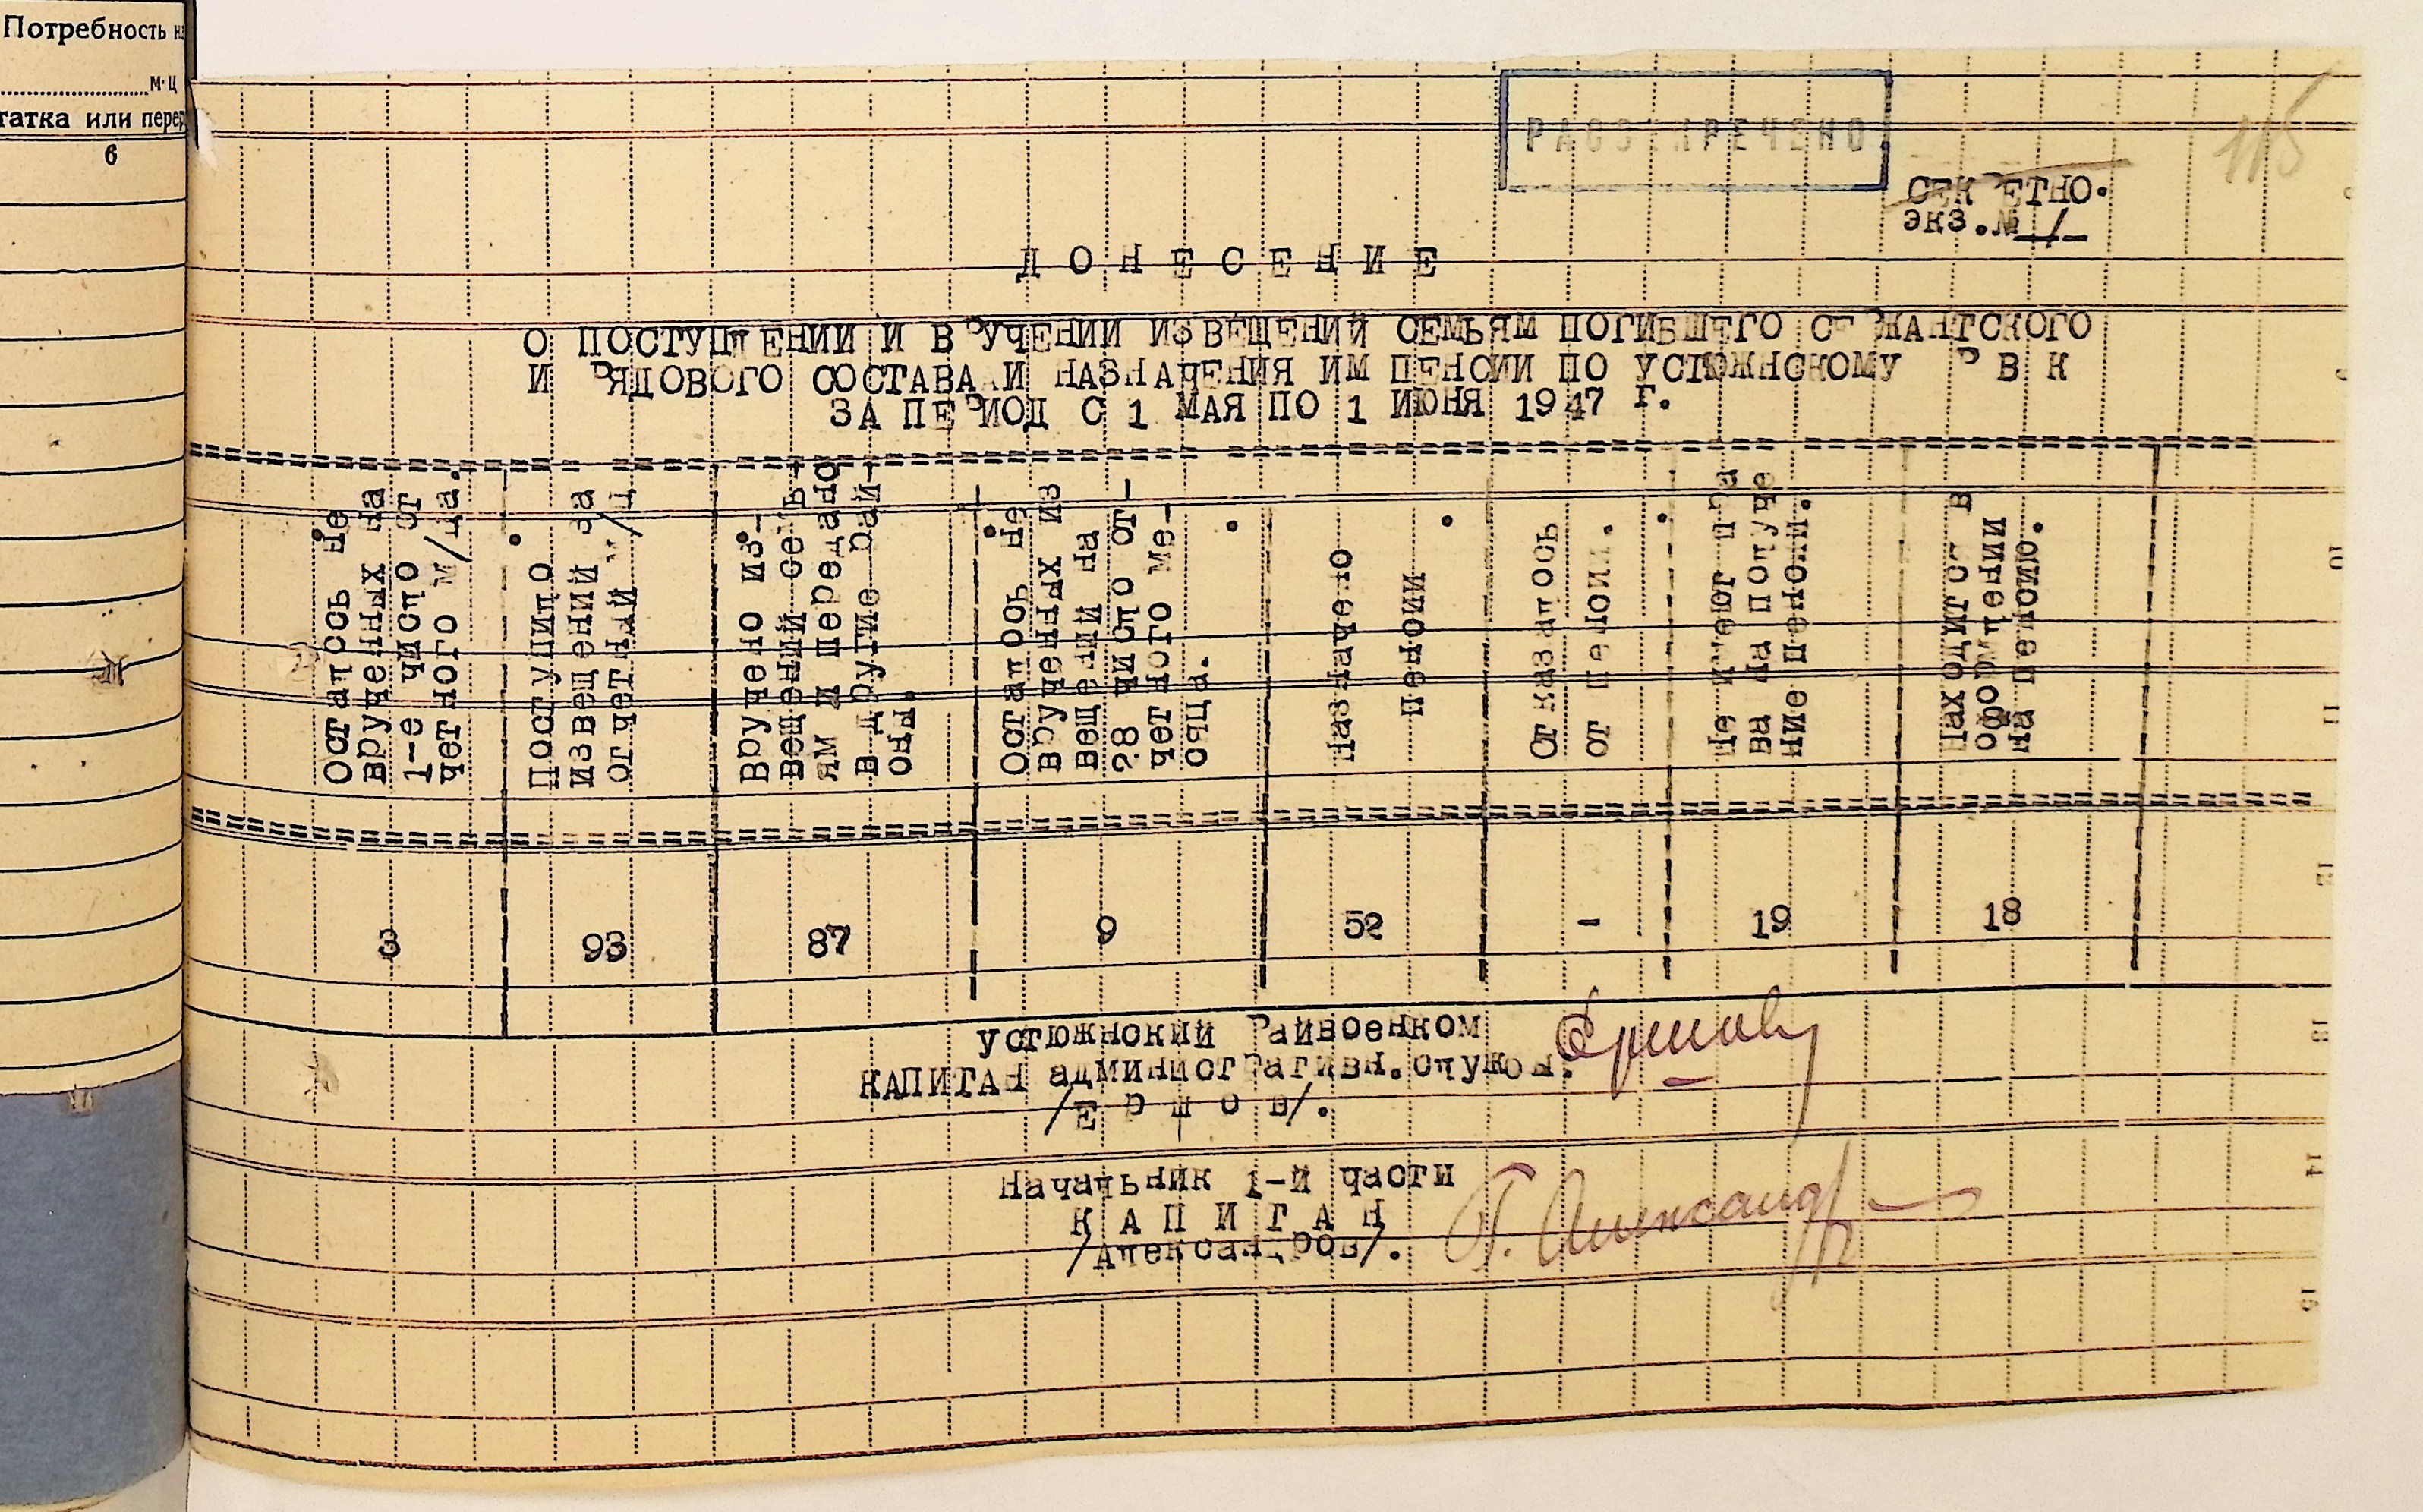 Потребность
м-ц
татка или перер
6
РАССЕКРЕЧЕНО
115
СЕКРЕТНО.
экз.№ 1
ДОНЕСЕНИЕ
О ПОСТУПЛЕНИИ И ВРУЧЕНИИ ИЗВЕЩЕНИЙ СЕМЬЯМ ПОГИБШЕГО СЕРЖАНТСКОГО
И РЯДОВОГО СОСТАВА И НАЗНАЧЕНИЯ ИМ ПЕНСИИ ПО УСТЮЖНСКОМУ Р В К
ЗА ПЕРИОД С 1 МАЯ ПО 1 ИЮНЯ 1947 Г.
Осталось не
врученных на
1-е число от
четного м/ца.
Поступило
извещений за
отчетный м/ц
Вручено из-
вещений семь-
ям и передано
в другие рай-
оны.
Осталось не
врученных из
вещений на
28 число от-
четного ме-
сяца.
Назначено
пенсии
Отказалось
от пенсии.
Не имеют пра
ва на получе
ние пенсии.
Находится в
оформлении
на пенсию.
3
93
87
9
52
-
19
18
Устюжнский Райвоенком
КАПИТАН административн.службы.
/Е р ш о в/.
Ершов
Начальник 1-й части
К А П И Т А Н
/Александров/.
Г. Александр
10
11
12
13
14
15